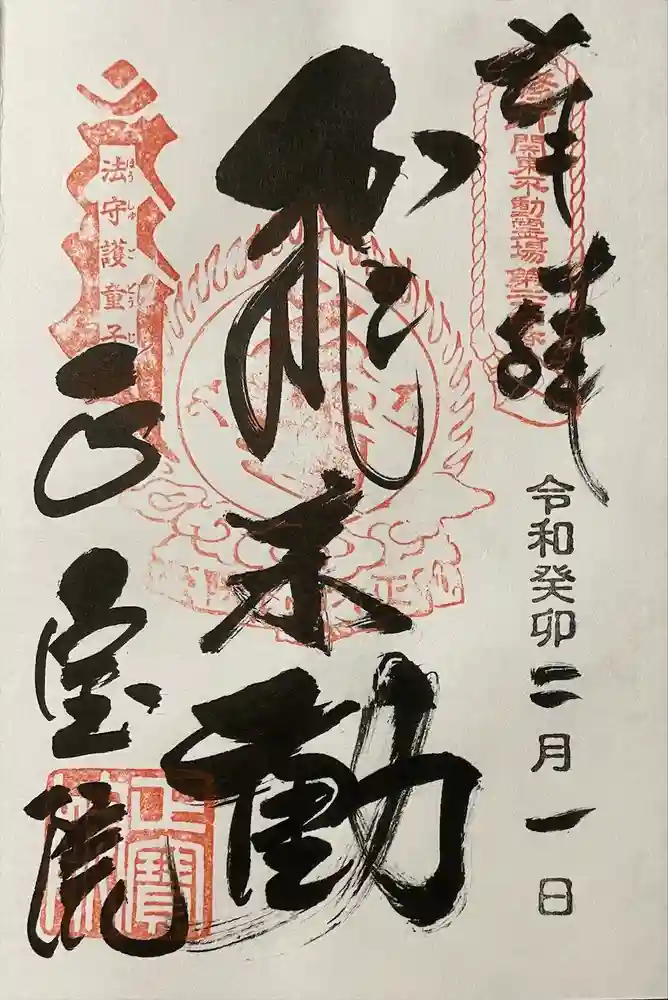 奉拝
関東不動霊場第
令和癸卯二月一日
飛不動
法守護童子
ほうしゅごどうじ
正宝院
正寶